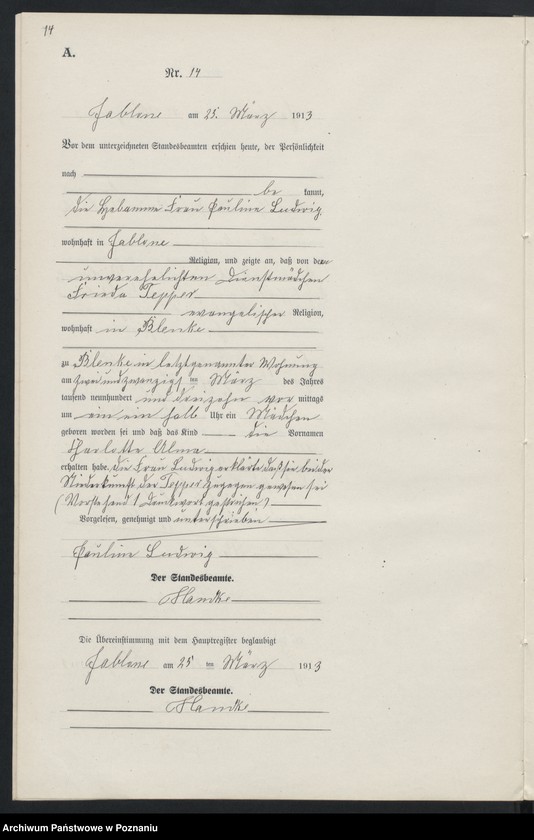 14
A.
Nr. 14
Jablone am 25. März 1913
Vor dem unterzeichneten Standesbeamten erschien heute, der Persönlichkeit
nach
be kannt,
die Hebamme Frau Pauline Ludwig
wohnhaft in Jablone
Religion, und zeigte an, daß von der
unverehelichten Dienstmädchen
Frieda Tepper
evangelischer Religion,
wohnhaft in Blenke
zu Blenke in letztgenannter Wohnung
am zwei und zwanzigsten März des Jahres
tausend neunhundert und dreizehn vor mittags
um ein ein halb Uhr ein Mädchen
geboren worden sei und daß das Kind die Vornamen
Charlotte Alma
erhalten habe. Die Frau Ludwig erklärte, daß sie bei der
Niederkunft der Tepper zugegen gewesen sei
(Vorstehend 1 Druckwort gestrichen)
Vorgelesen, genehmigt und unterschrieben
Pauline Ludwig
Der Standesbeamte.
Die Übereinstimmung mit dem Hauptregister beglaubigt
Jablone am 25 ten März 1913
Der Standesbeamte.
Archiwum Państwowe w Poznaniu